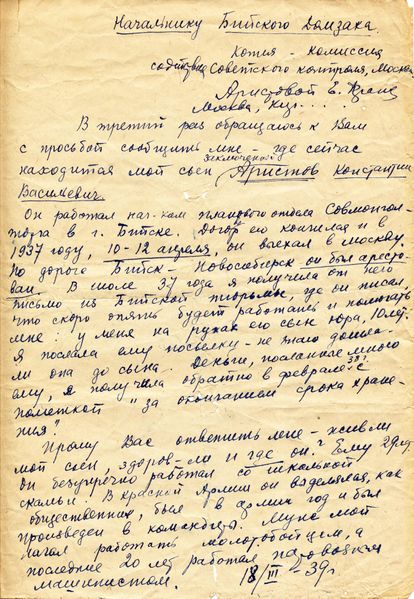 Начальнику Бийского Домзака.
Копия – Комиссия
содействия Советского контроля, Москва
Аристовой Е.
Москва,
В третий раз обращаюсь к Вам
с просьбой сообщить мне – где сейчас
заключенный
находится мой сын Аристов Константин
Васильевич.
Он работал нач-ком планового отдела Совмонгол-
торга в г. Бийске. Договор его кончился и в
1937 году, 10-12 апреля, он выехал в Москву.
По дороге Бийск – Новосибирск он был аресто-
ван. В июле 37 года я получила от него
письмо из Бийской тюрьмы, где он писал,
что скоро опять будет работать и помогать
мне: у меня на руках его сын Юра, 10 лет.
Я послала ему посылку – не знаю дошла-
ли она до сына. Деньги, посланные мною
ему, я получила обратно в феврале 38 г. с
пометкой "за окончанием срока хране-
ния"
Прошу Вас ответить мне – жив ли
мой сын, здоров-ли и где он? Ему 29 лет
Он безупречно работал со школьной
скамьи. В Красной Армии он выделялся, как
общественник, был в армии год и был
произведен в командиры. Муж мой
начал работать молотобойцем, а
последние 20 лет работал паровозным
машинистом.
18/III – 39 г.